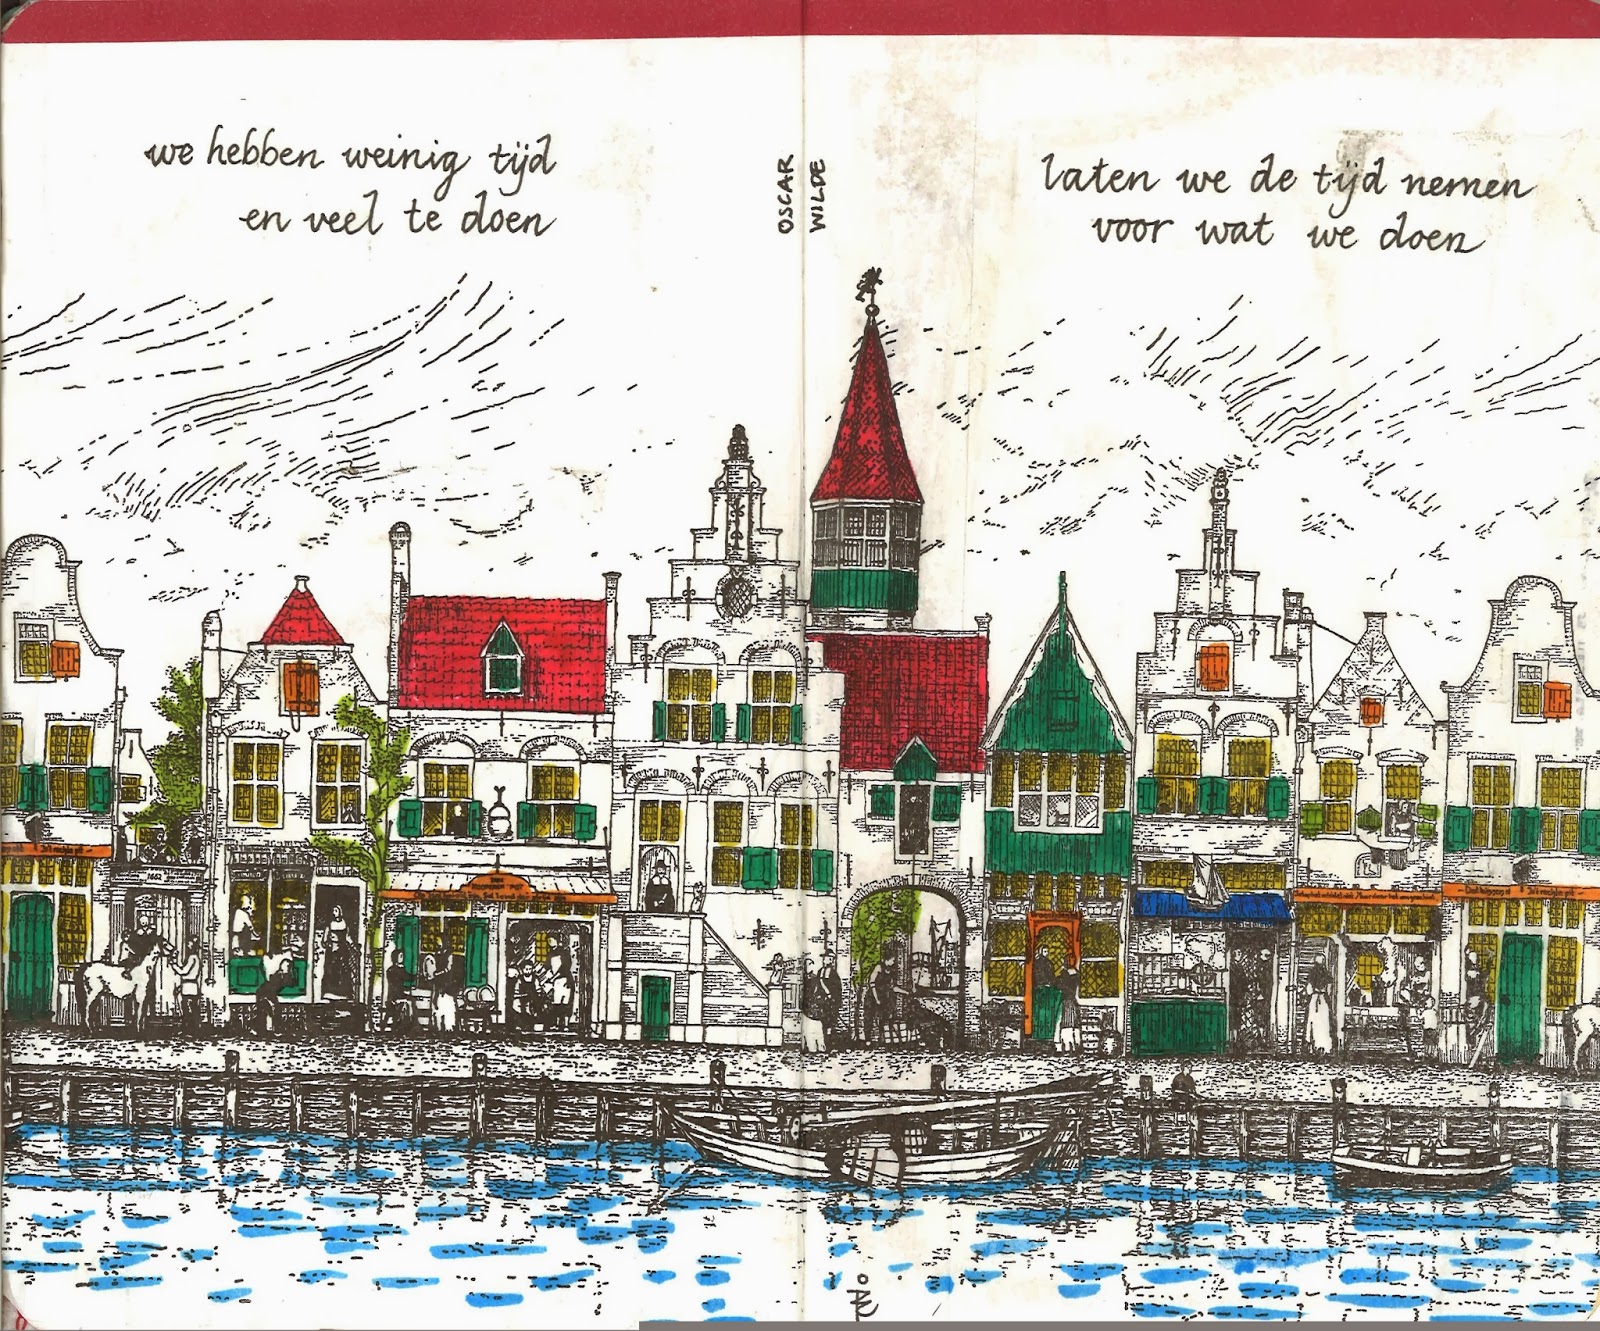 we hebben weinig tijd
en veel te doen
OSCAR
WILDE
laten we de tijd nemen
voor wat we doen
1662